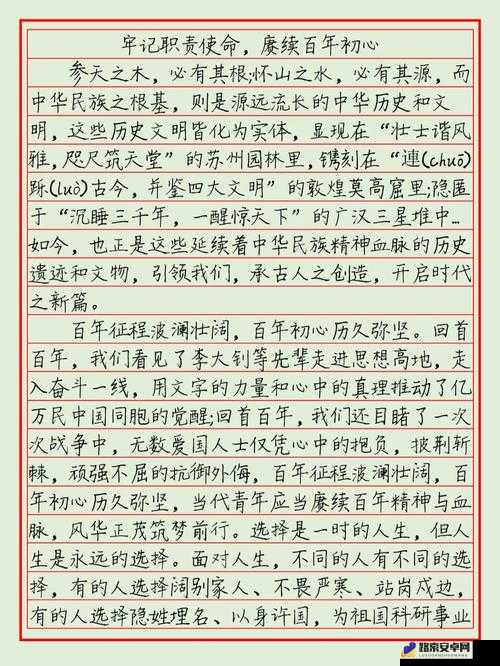 牢记职责使命，赓续百年初心
参天之木，必有其根;怀山之水，必有其源，而
中华民族之根基，则是源远流长的中华历史和文
明，这些历史文明皆化为实体，显现在“壮士谐风
雅，咫尺筑天堂”的苏州园林里，镌刻在“逴(chuō)
跞(luò)古今，并鉴四大文明”的敦煌莫高窟里;隐匿
于“沉睡三千年，一醒惊天下”的广汉三星堆中…
如今，也正是这些延续着中华民族精神血脉的历史
遗迹和文物，引领我们，承古人之创造，开启时代
之新篇。
百年征程波澜壮阔，百年初心历久弥坚。回首
百年，我们看见了李大钊等先辈走进思想高地，走
入奋斗一线，用文字的力量和心中的真理推动了亿
万民中国同胞的觉醒;回首百年，我们还目睹了一次
次战争中，无数爱国人士仅凭心中的抱负，披荆斩
棘，顽强不屈的抗御外侮，百年征程波澜壮阔，百
年初心历久弥坚，当代青年应当赓续百年精神与血
脉，风华正茂筑梦前行。选择是一时的人生，但人
生是永远的选择。面对人生，不同的人有不同的选
择，有的人选择阔别家人、不畏严寒、站岗戍边，
有的人选择隐姓埋名、以身许国，为祖国科研事业
路南安卓网